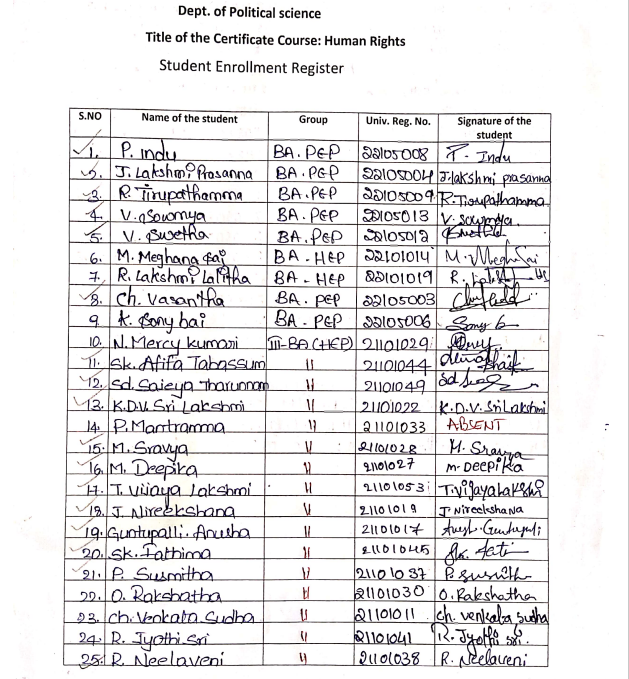 Dept. of Political science
Title of the Certificate Course: Human Rights
Student Enrollment Register
S.NO Name of the student Group Univ. Reg. No. Signature of the student
1. P. Indu BA. PEP 22105008 P. Indu
2. J. Lakshmi Prasanna BA. PEP 22105004 J. lakshmi prasanna
3. R. Tirupathamma BA. PEP 22105009 R. Tirupathamma
4. V. Sowmya BA. PEP 22105013 V. Sowmya
5. V. Swetha BA. PEP 22105012
6. M. Meghana Bai BA - HEP 22101014 M.
7. R. Lakshmi Lalitha BA - HEP 22101019 R.
8. Ch. Vasantha BA. PEP 22105003
9. K. Sony bai BA. PEP 22105006 Sony b
10. N. Mercy kumari III-BA (HEP) 21101029
11. Sk. Afifa Tabassum 11 21101044
12. Sd. Saieya Tharunnam 11 21101049 Sd
13. K.D.V. Sri Lakshmi 11 21101022 K.D.V. Sri Lakshmi
14. P. Mantramma 11 21101033 ABSENT
15. M. Sravya 11 21101028 M. Sravya
16. M. Deepika 11 21101027 M. Deepika
17. T. Vijaya Lakshmi 11 21101053 T. Vijayalakshmi
18. J. Nireekshana 11 21101019 J. Nireekshana
19. Guntupalli. Anusha 11 21101017
20. SK. Fathima 11 21101045 Sk. fati
21. P. Susmitha 11 21101037 P. Susmith
22. O. Rakshatha 11 21101030 O. Rakshatha
23. Ch. Venkata Sudha 11 21101011 Ch. venkata sudha
24. R. Jyothi Sri 11 21101041 R. Jyothi sri.
25. R. Neelaveni 11 21101038 R. Neelaveni